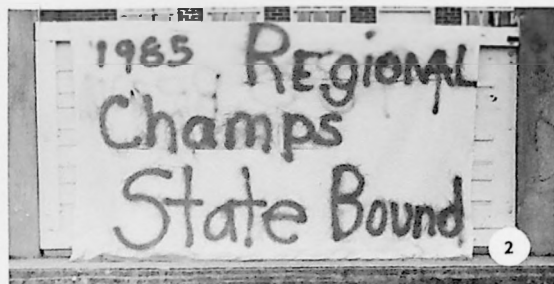 1985 REgioNAL
Champs
State Bound
2